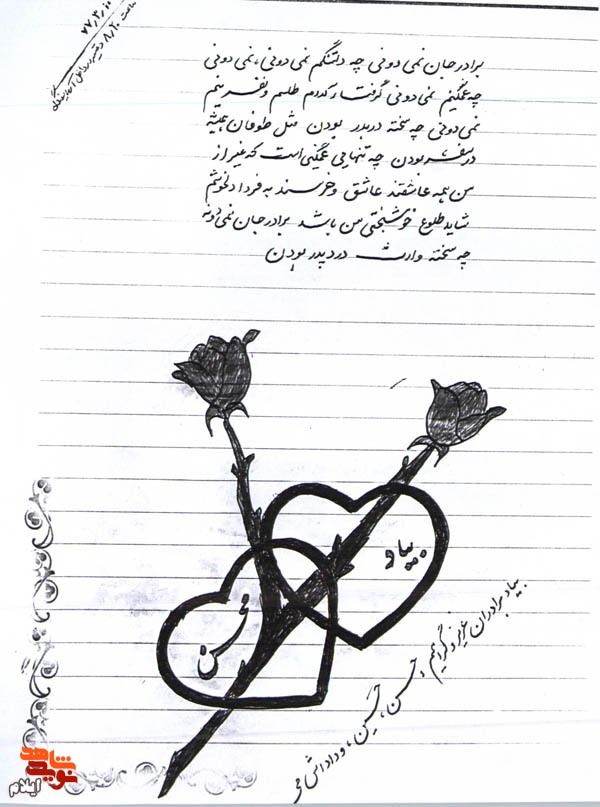 ۷۷,۳,۱۰
ساعت ۸,۲۰
برادر جان نمی دونی چه دلتنگم نمی دونی، نمی دونی
چه غمگینم نمی دونی گرفتار کدوم طلسم و نفرینم
نمی دونی چه سخته در بدر بودن مثل طوفان همیشه
در سفر بودن چه تنهایی غمگینی است که غیر از
من همه عاشقند عاشق و خرسند به فردا دلخوشم
شاید طلوع خوشبختی من باشد برادر جان نمی دونی
چه سخته وارث درد پدر بودن
بیاد
محسن
بیاد برادران عزیز و گرامیم حسن، حسین، و داداش
شاهد
نوید
ایلام